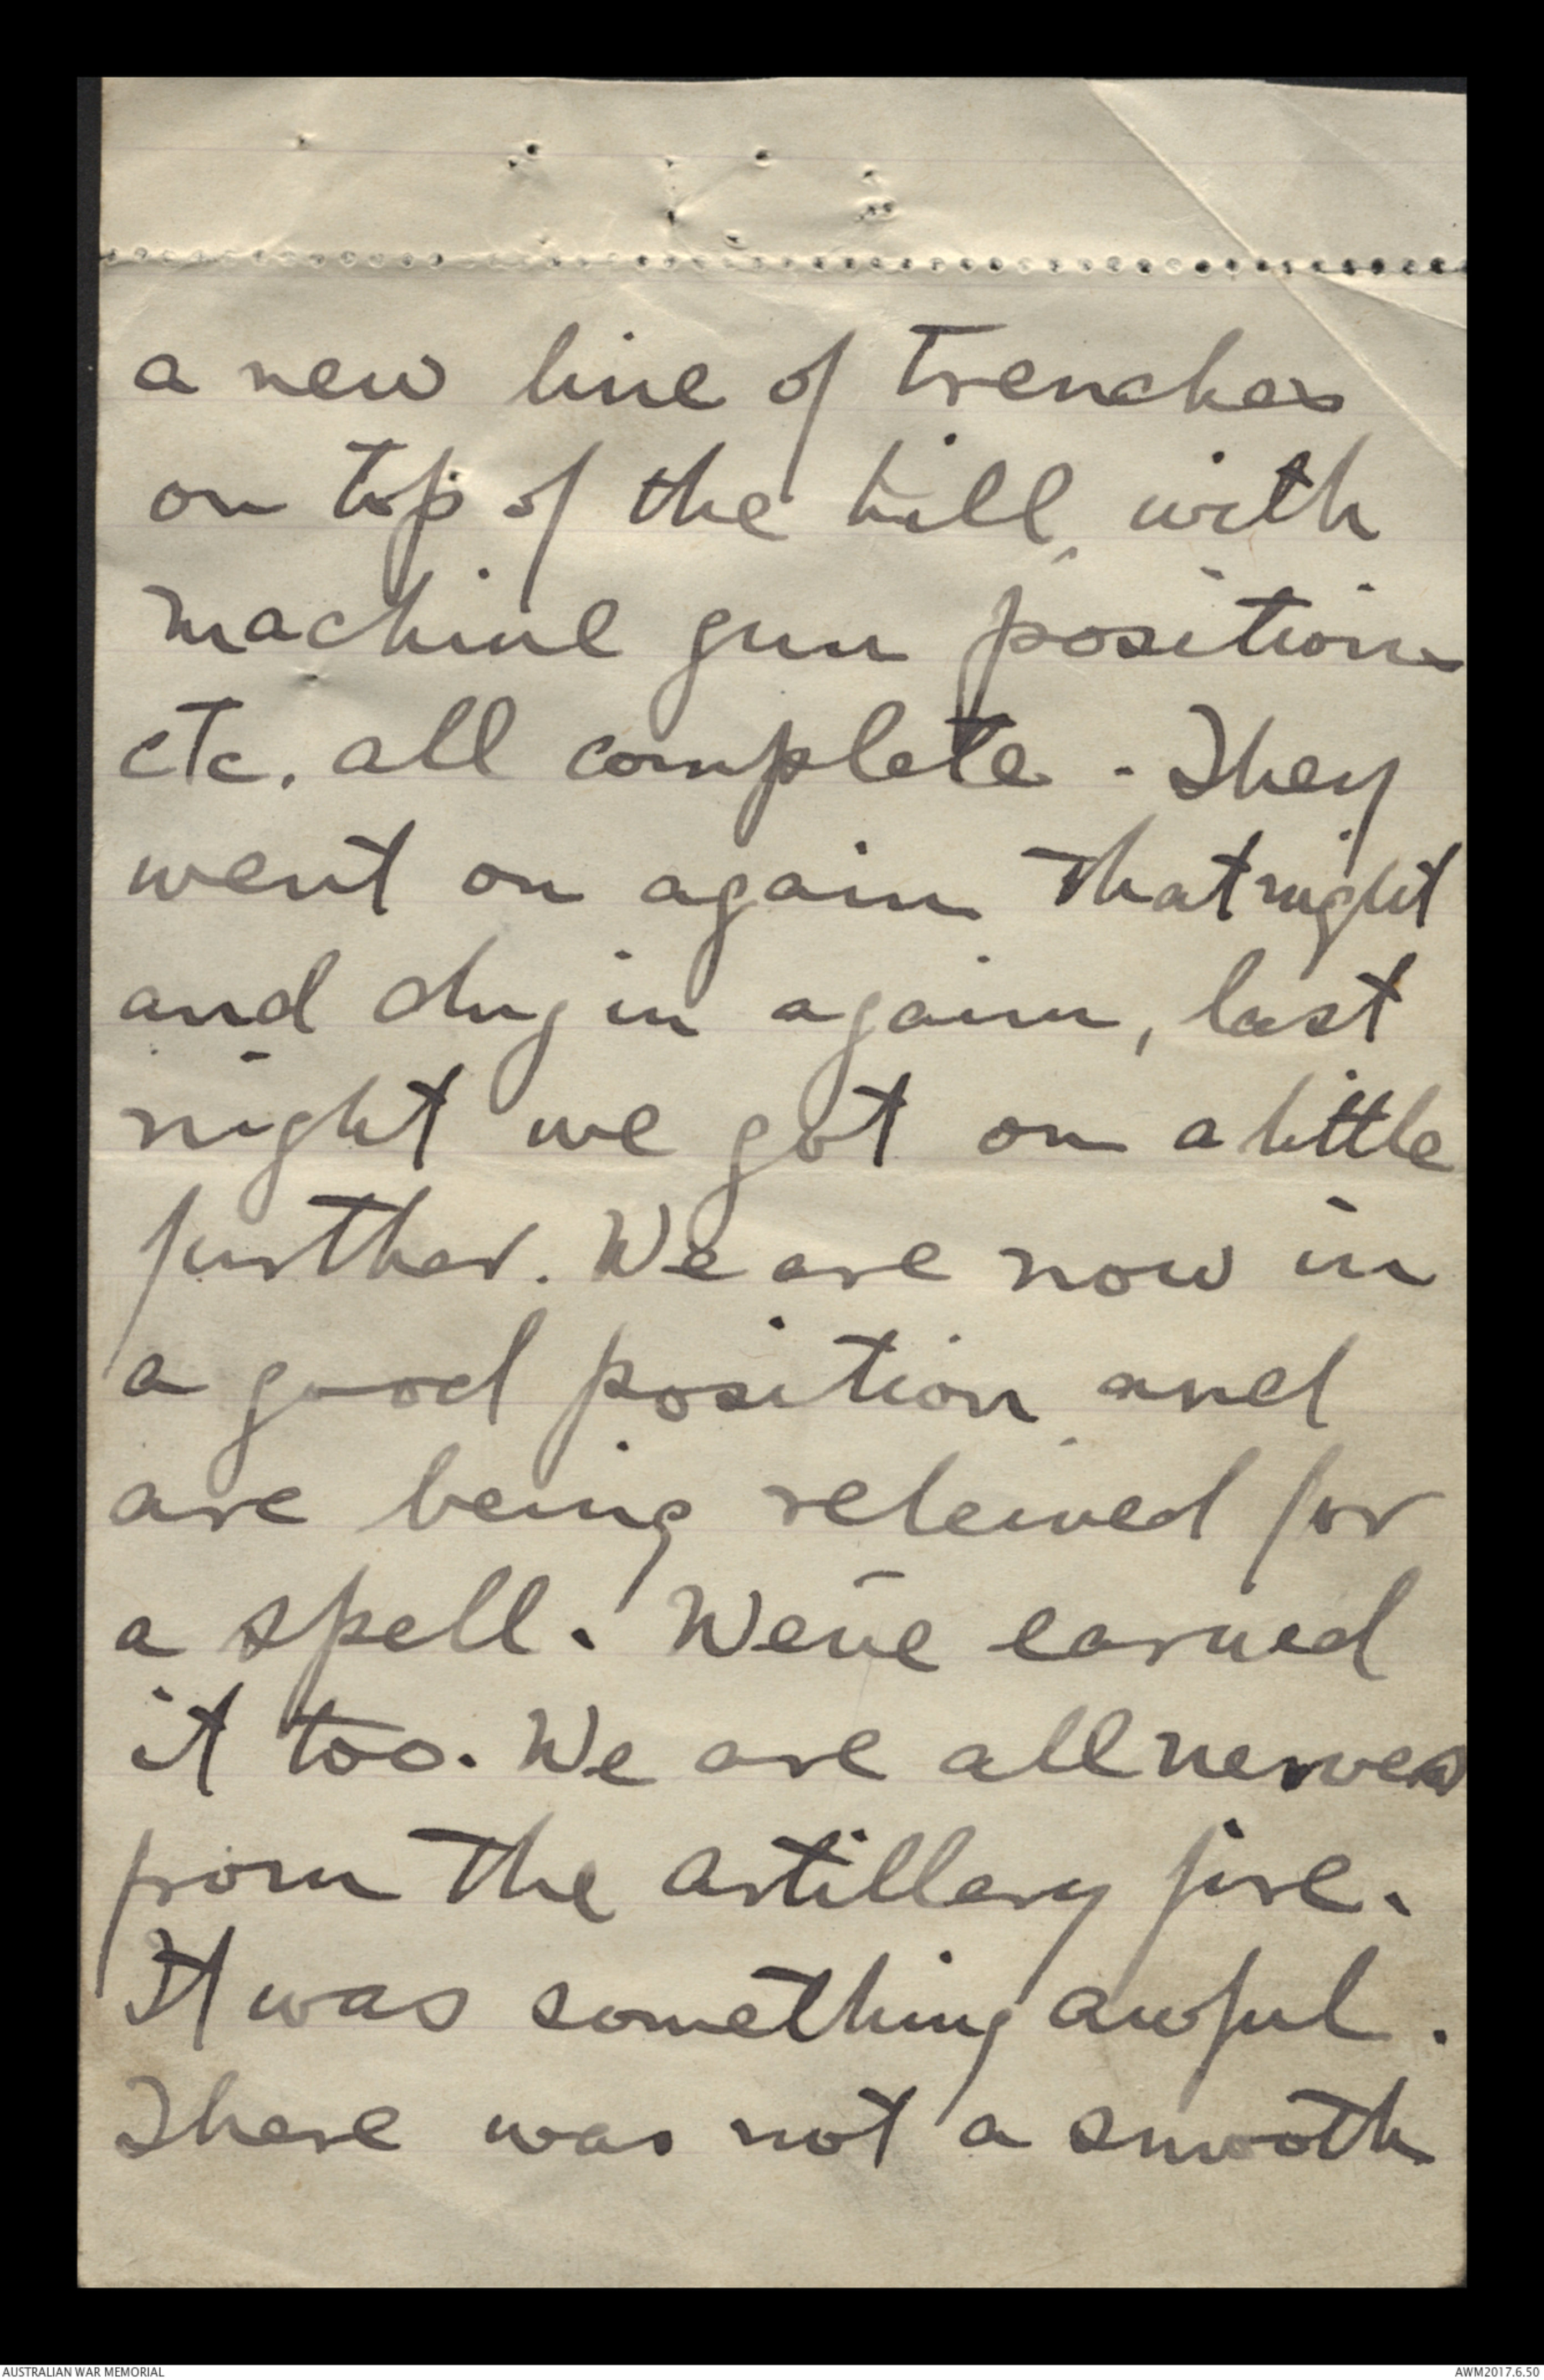 a new line of trenches
on top of the hill, with
machine gun positions
etc. all complete. They
went on again that night
and dug in again, last
night we got on a little
further. We are now in
a good position and
are being releived for
a spell. Weve earned
it too. We are all nerves
from the artillery fire.
It was something awful.
There was not a smooth
AUSTRALIAN WAR MEMORIAL
AWM2017.6.50